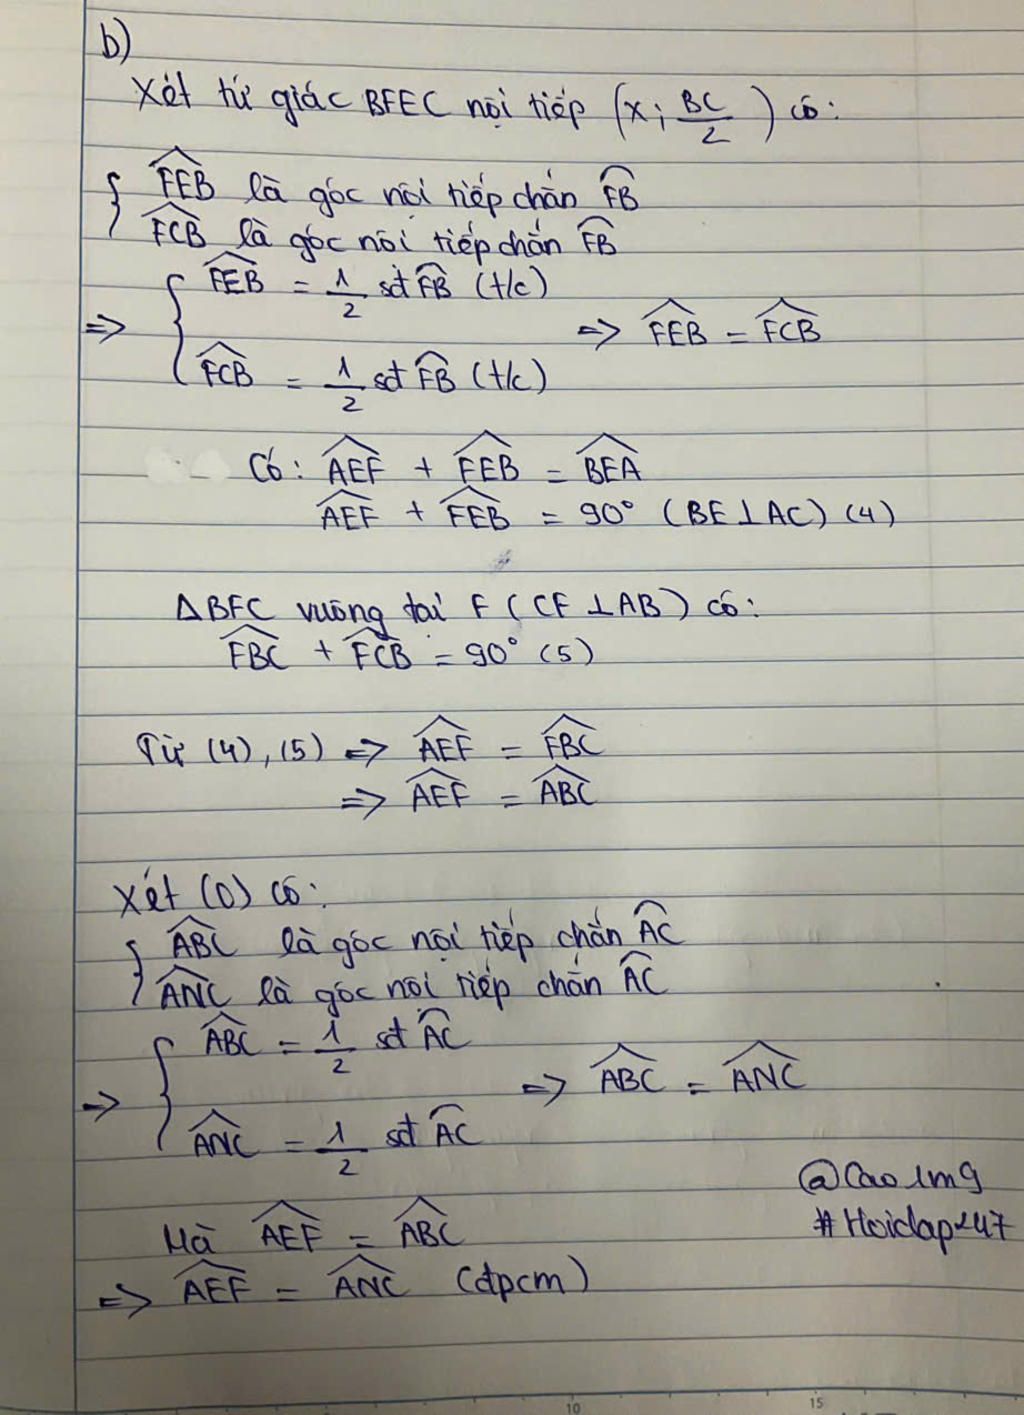 b)
Xét tứ giác BFEC nội tiếp (X; BC/2) có:
{ \widehat{FEB} là góc nội tiếp chắn \overset{\frown}{FB}
\widehat{FCB} là góc nội tiếp chắn \overset{\frown}{FB}
=> { \widehat{FEB} = 1/2 sđ \overset{\frown}{FB} (t/c)
\widehat{FCB} = 1/2 sđ \overset{\frown}{FB} (t/c) => \widehat{FEB} = \widehat{FCB}
Có: \widehat{AEF} + \widehat{FEB} = \widehat{BEA}
\widehat{AEF} + \widehat{FEB} = 90° (BE ⊥ AC) (4)
ΔBFC vuông tại F (CF ⊥ AB) có:
\widehat{FBC} + \widehat{FCB} = 90° (5)
Từ (4), (5) => \widehat{AEF} = \widehat{FBC}
=> \widehat{AEF} = \widehat{ABC}
Xét (O) có:
{ \widehat{ABC} là góc nội tiếp chắn \overset{\frown}{AC}
\widehat{ANC} là góc nội tiếp chắn \overset{\frown}{AC}
=> { \widehat{ABC} = 1/2 sđ \overset{\frown}{AC}
\widehat{ANC} = 1/2 sđ \overset{\frown}{AC} => \widehat{ABC} = \widehat{ANC}
@Cao1mg
#Hoidap247
Mà \widehat{AEF} = \widehat{ABC}
=> \widehat{AEF} = \widehat{ANC} (đpcm)
10 15